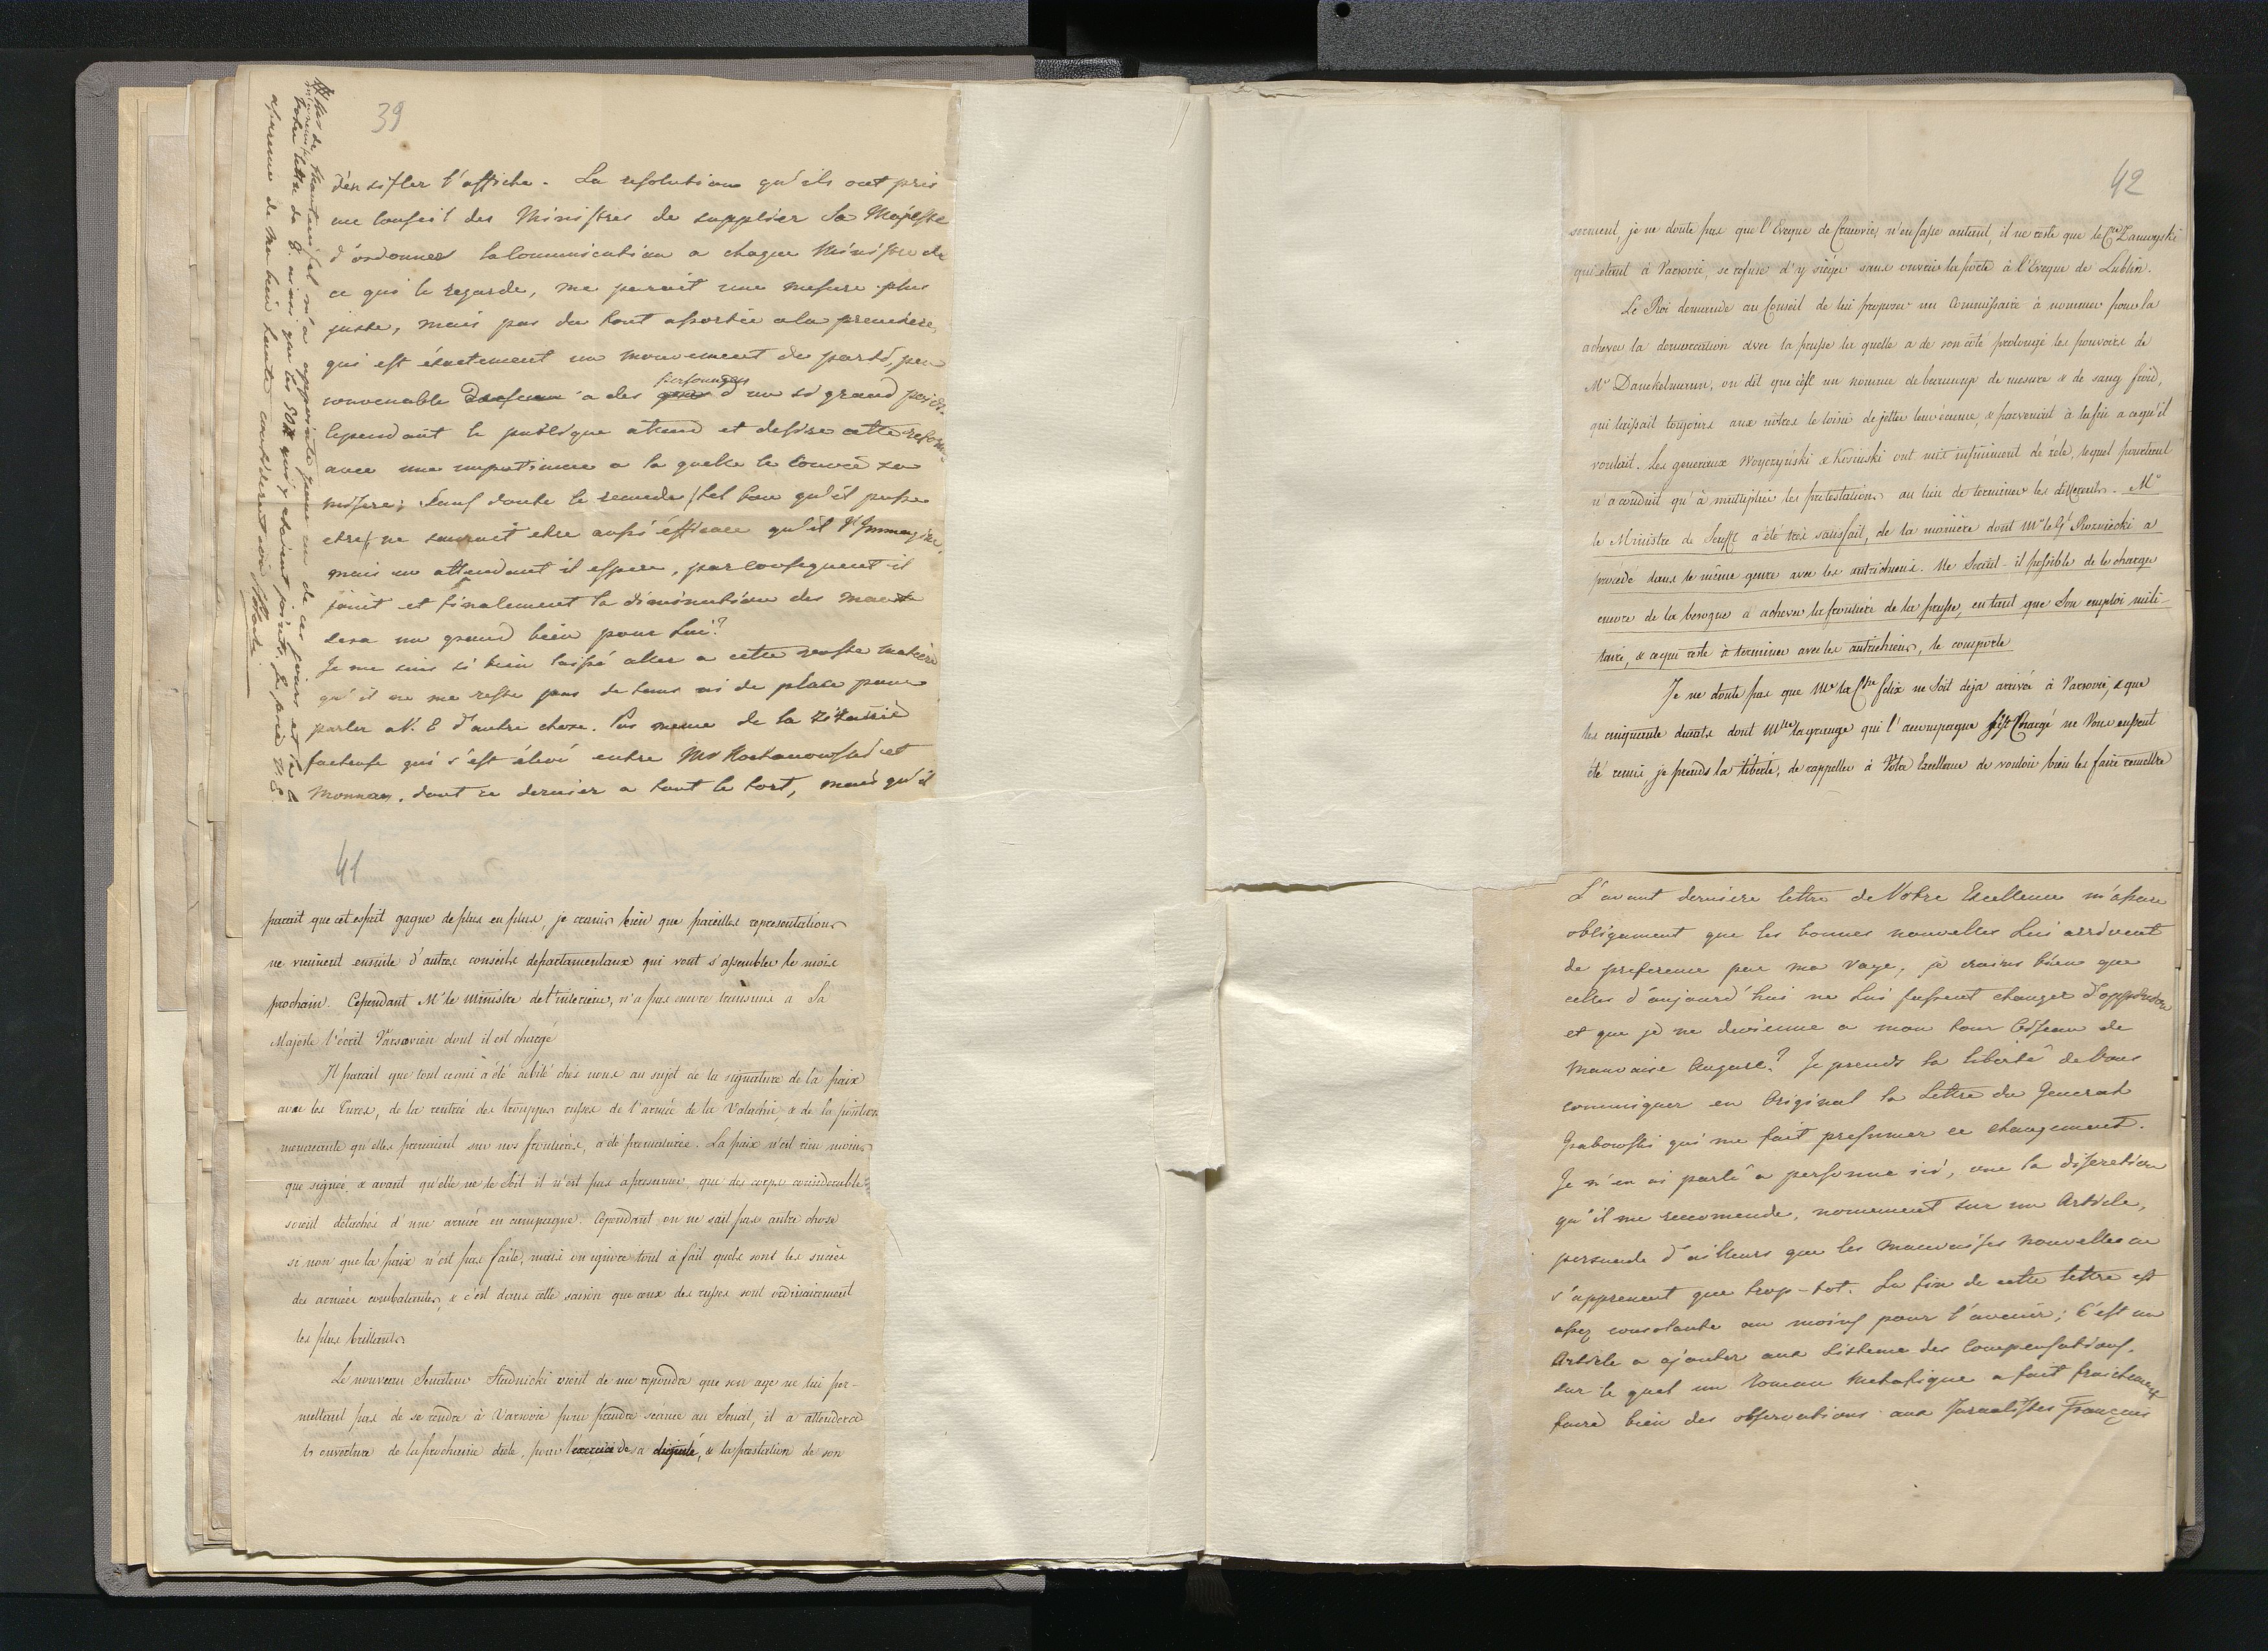 39
d'en sifler l'affiche. La resolution qu'ils ont pris
au Conseil des Ministres de supplier Sa Majesté
d'ordonner la Communication a chaque Ministre de
ce qui le regarde, me parait une mesure plus
juste, mais pas du tout assortie a la premiere,
qui est éxactement un mouvement de parti, peu
convenable a des personnages d'un si grand poids.
Cependant le publique attend et desire cette reforme
avec une impatience a la quelle le Convie sa
misere; Sans doute le remede (tel bon qu'il puisse
etre), ne sauroit etre aussi éfficace qu'il l'Immagine,
mais en attendant il espere, par consequent il
jouit et finalement la diminution des maux
sera un grand bien pour Lui?
Je me suis si bien laissé aller a cette matiere
qu'il ne me reste pas de tems ni de place pour
parler a V. E d'autre chose. Pas meme de la
facheuse qui s'est élevé entre Mrs Kochanowski et
Monnay, dont ce dernier a tout le tort, mais qu'il
m'a apporté un de ces jours
votre lettre de E. ainsi que les qui y etaient joints. Je prie V. E.
de ma bien haute consideration
41
parait que cet esprit gagne de plus en plus, je crains bien que pareilles representations
ne viennent ensuite d'autres conseils departamentaux qui vont s'assembler le mois
prochain. Cependant Mr le ministre de l'interieur, n'a pas encore transmis a Sa
Majesté l'écrit Varsovien dont il est chargé
Il parait que tout ce qui a été débité chés nous au sujet de la signature de la paix
avec les Turcs, de la rentrée des trouppes russes de l'armée de la Valachie, & de la position
menacante qu'elles prennent sur nos frontières, a été prematurée. La paix n'est rien moins
que signée, & avant qu'elle ne le Soit il n'est pas a presumer, que des corps considerables
soient detachés d'une armée en campagne. Cependant on ne sait pas autre chose
si non que la paix n'est pas faite, mais on ignore tout à fait quels sont les succès
des armées combatentes, & c'est dans cette saison que ceux des russes sont ordinairement
les plus brillants
Le nouveau Senateur Stadnicki vient de me repondre que son age ne lui per-
mettant pas de se rendre à Varsovie pour prendre séance au Senat, il a attendra
l'ouverture de la prochaine diete, pour l'exercice de sa dignité, & la prestation de son
42
serment, je ne doute pas que l'Eveque de Cracovie, n'en fasse autant, il ne reste que le Cte Zamoyski
qui etant à Varsovie, se refuse d'y siéger sans ouvrir la porte à l'Eveque de Lublin.
Le Roi demande au Conseil de lui proposer un Commissaire à nommer pour la
achever la demarcation avec la prusse la quelle a de son côté prolongé les pouvoirs de
Mr Danckelmann, on dit que c'est un homme de beaucoup de mesure & de sang froid,
qui laissait toujours aux nôtres le loisir de jetter leur écume, & parvenait à la fin a ce qu'il
voulait. Les generaux Woyczyński & Kosinski ont mis infiniment de zèle, lequel pourtant
n'a conduit qu'à multiplier les protestations au lieu de terminer les differents. Mr
le Ministre de Senfft a été très satisfait, de la manière dont Mr le Gl Rozniecki a
procedé dans le même genre avec les autrichiens. Ne Serait-il possible de le charger
encore de la besogne d'achever la frontière de la prusse, en tant que Son emploi mili-
taire, & ce qui reste à terminer avec les autrichiens, le comporte
Je ne doute pas que Me la Ctsse felix ne Soit déja arrivée à Varsovie, & que
les cinquante ducats dont Mlle Lagrange qui l'accompagne s'est Chargé ne Vous eussent
été remis, je prends la liberté, de rappeller à Votre Excellence de vouloir bien les faire remettre
L'avant derniere lettre de Votre Excellence m'assure
obligament que les bonnes nouvelles Lui arrivent
de preference par ma voye, je crains bien que
celles d'aujourd'hui ne Lui fassent changer d'oppinion
et que je ne devienne a mon tour l'oiseau de
mauvaise Augure? Je prends la liberté de Vous
communiquer en Original la Lettre du General
Grabowski qui me fait presumer ce changement.
Je n'en ai parlé a personne ici, vue la discretion
qu'il me recomende, nomement sur un Article,
persuadé d'ailleurs que les mauvaises nouvelles ne
s'apprenent que trop-tot. La fin de cette lettre est
assez consolante au moins pour l'avenir; C'est un
Article a ajouter aux Sisteme des Compensations,
sur le quel un Roman Metafisique a fait fraichement
faire bien des observations aux Journalistes Français